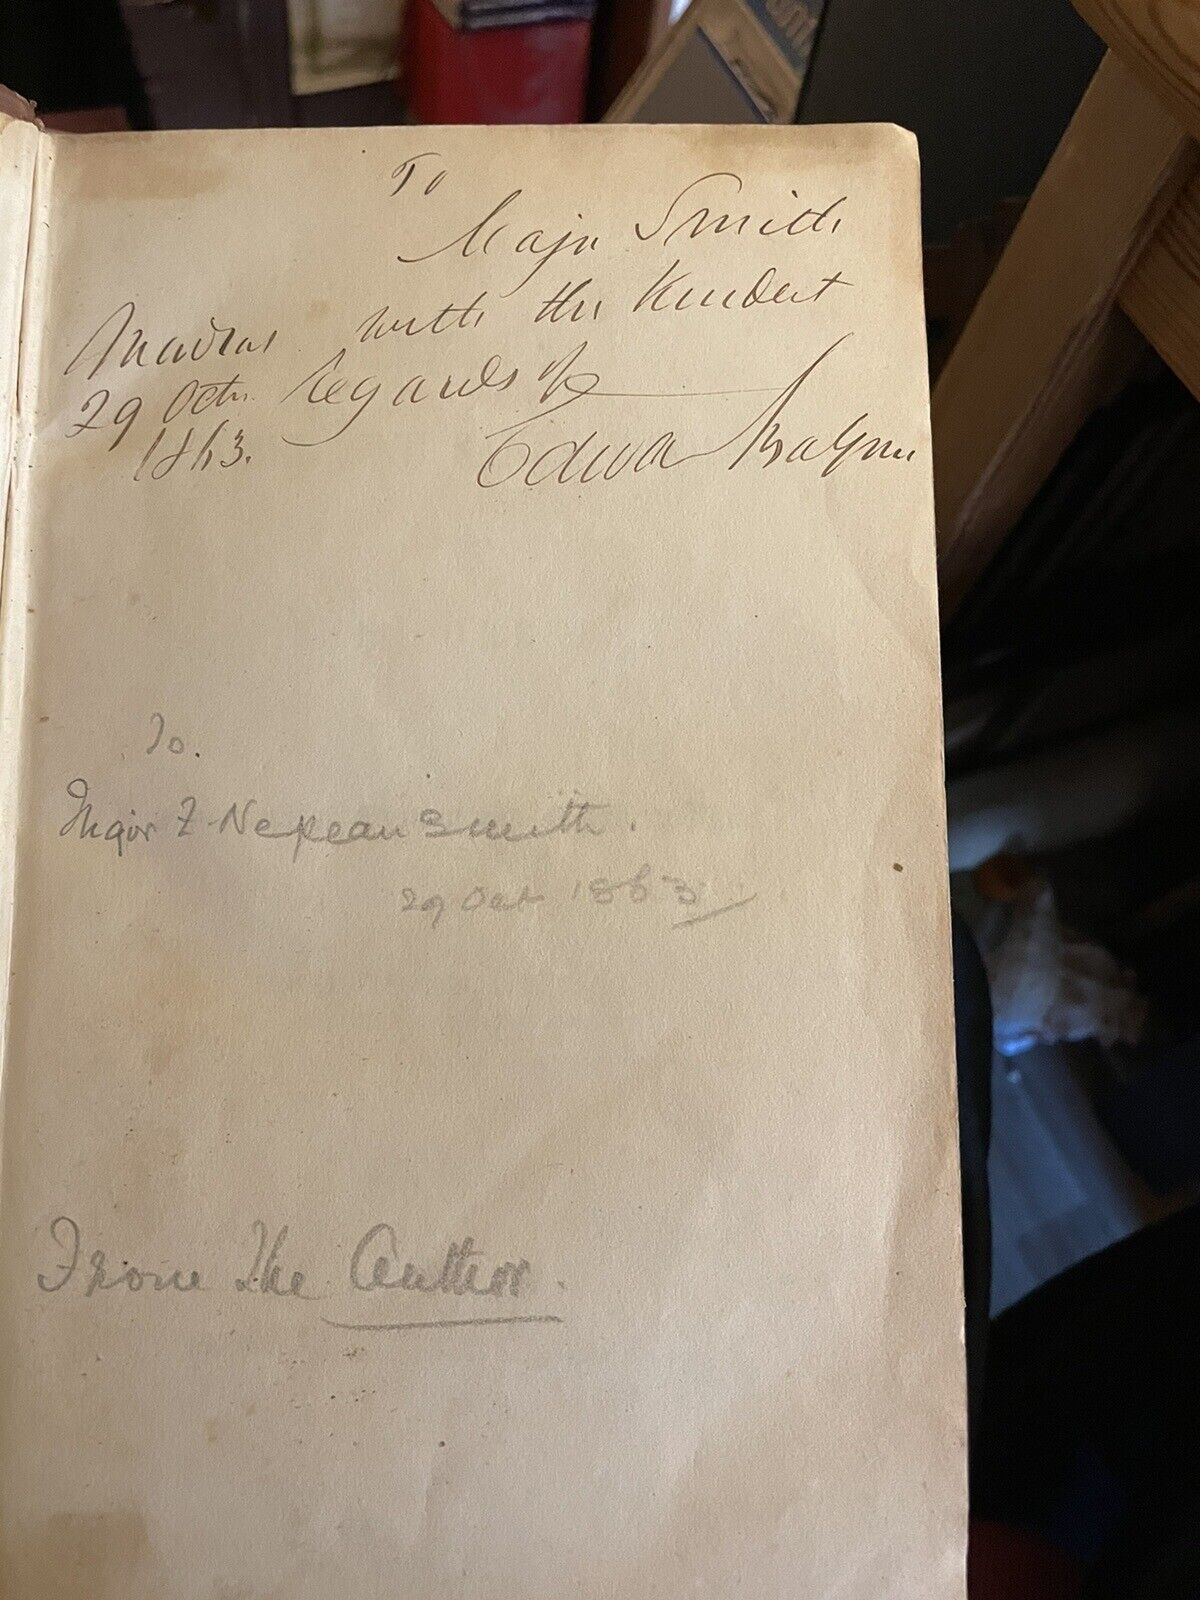 To
Major Smith
with the kindest
regards of
Madras
29 Octr.
1863.
Edward Balfour
To.
Major F. Nepean Smith.
29 Oct 1863
From The Author.